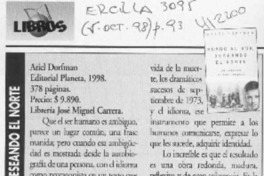 ERCILLA 3095
(5. OCT. 98) p. 93
LIBROS
DESEANDO EL NORTE
Ariel Dorfman
Editorial Planeta, 1998.
378 páginas.
Precio: $ 9.890.
Librería José Miguel Carrera.
Que el ser humano es ambiguo,
parece un lugar común, una frase
manida; pero cuando esa ambigüe-
dad es mostrada desde la autobio-
grafía de una persona, con el idioma
como
vida de la muer-
te, los dramáticos
sucesos de sep-
tiembre de 1973,
y el idioma, ese
instrumento que permite a los
humanos comunicarse, expresar lo
que les sucede, adquirir identidad.
Lo increíble es que el resultado
es una obra redonda, madura,